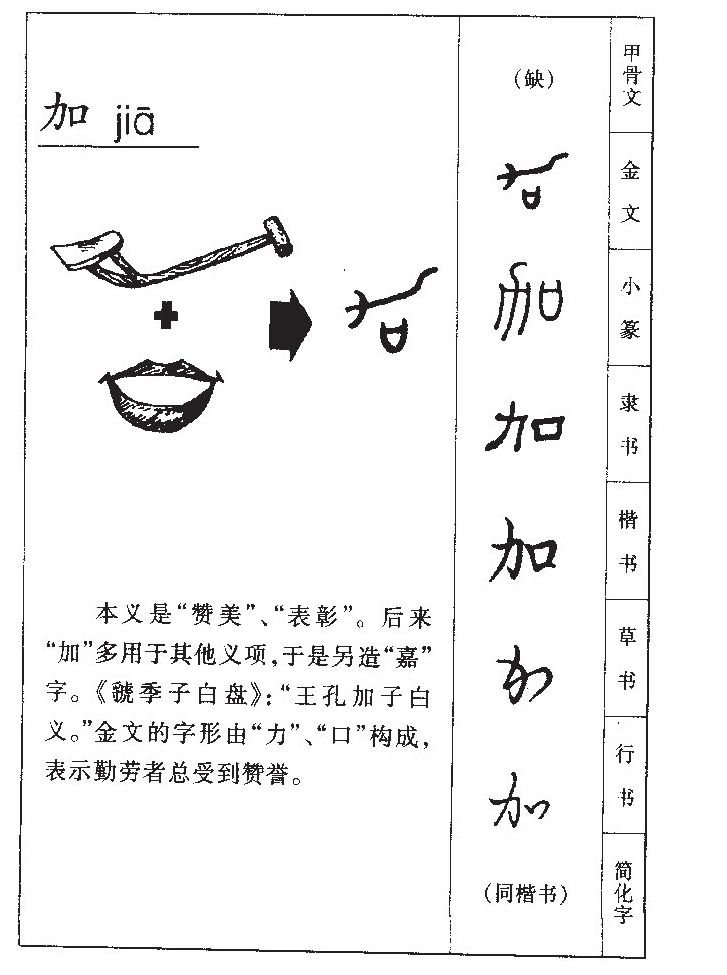 加 jiā
本义是“赞美”、“表彰”。后来
“加”多用于其他义项,于是另造“嘉”
字。《虢季子白盘》:“王孔加子白
义。”金文的字形由“力”、“口”构成,
表示勤劳者总受到赞誉。
(缺) 甲骨文
加 金文
加 小篆
加 隶书
加 楷书
加 草书
加 行书
(同楷书) 简化字